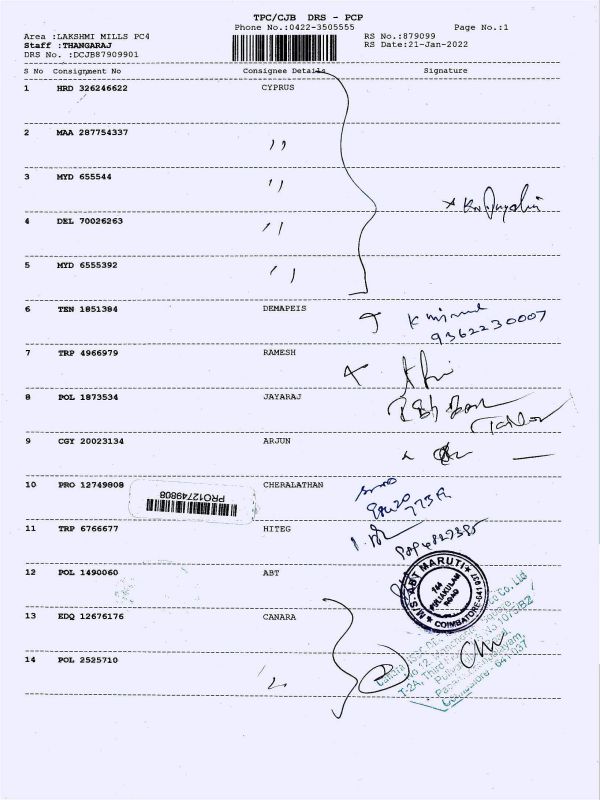 TPC/CJB DRS - PCP
Phone No.:0422-3505555 Page No.:1
Area :LAKSHMI MILLS PC4 RS No.:879099
Staff :THANGARAJ RS Date:21-Jan-2022
DRS No. :DCJB87909901
S No Consignment No Consignee Details Signature
1 HRD 326246622 CYPRUS
2 MAA 287754337 ,,
3 MYD 655544 ,,
4 DEL 70026263 ,,
5 MYD 6555392 ,,
6 TEN 1851384 DEMAPEIS
9362230007
7 TRP 4966979 RAMESH
8 POL 1873534 JAYARAJ
9 CGY 20023134 ARJUN
10 PRO 12749808 CHERALATHAN
PRO12749808
11 TRP 6766677 HITEG
12 POL 1490060 ABT
M/S. ABT MARUTI
764
PULIAKULAM
ROAD
COIMBATORE-641
13 EDQ 12676176 CANARA
14 POL 2525710 ,,
Co., Ltd
No 12,
T-2A, Third
Coimbatore - 641037